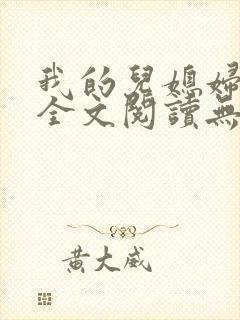 我的兒媳婦
全文閱讀無
黃大威